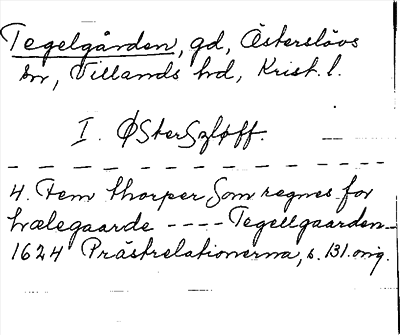 Tegelgården, gd, Österslövs
sn, Villands hd, Krist. l.
I. ØsterSzløff.
— — — — — — — — — — — —
4. Fem thorper Som regnes for
hælegaarde ---- Tegellgaarden_
1624 Prästrelationerna, s. 131. orig.